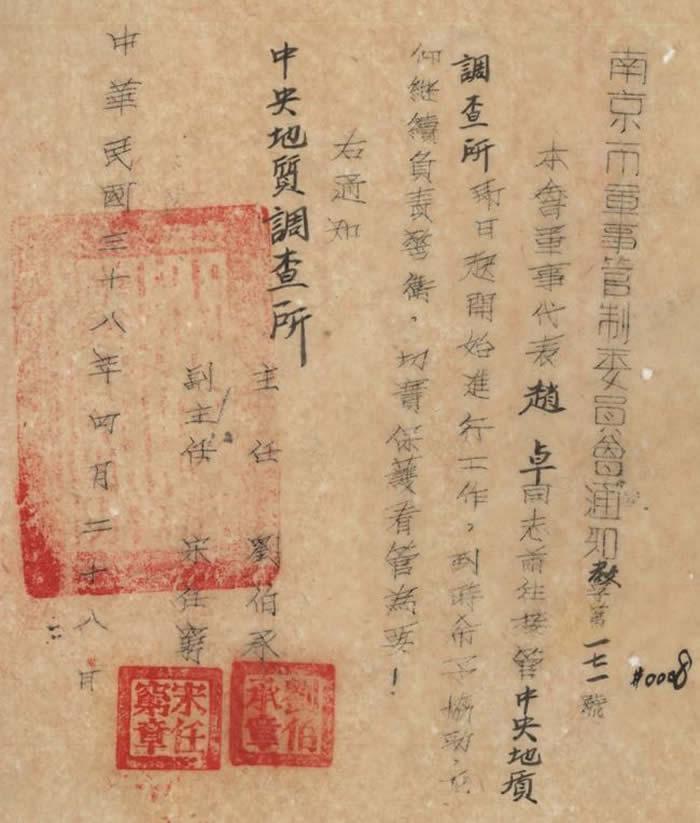 南京市軍事管制委員會通知教字第一七一號
#0008
本會軍事代表趙卓同志前往接管中央地质
調查所 即日起開始進行工作，到時希予協助，
仰繼續負責 切實保護看管為要！
右通知
中央地质調查所
主任 劉伯承
副主任 宋任窮
中華民國三十八年四月二十八日
劉伯承章
宋任窮章